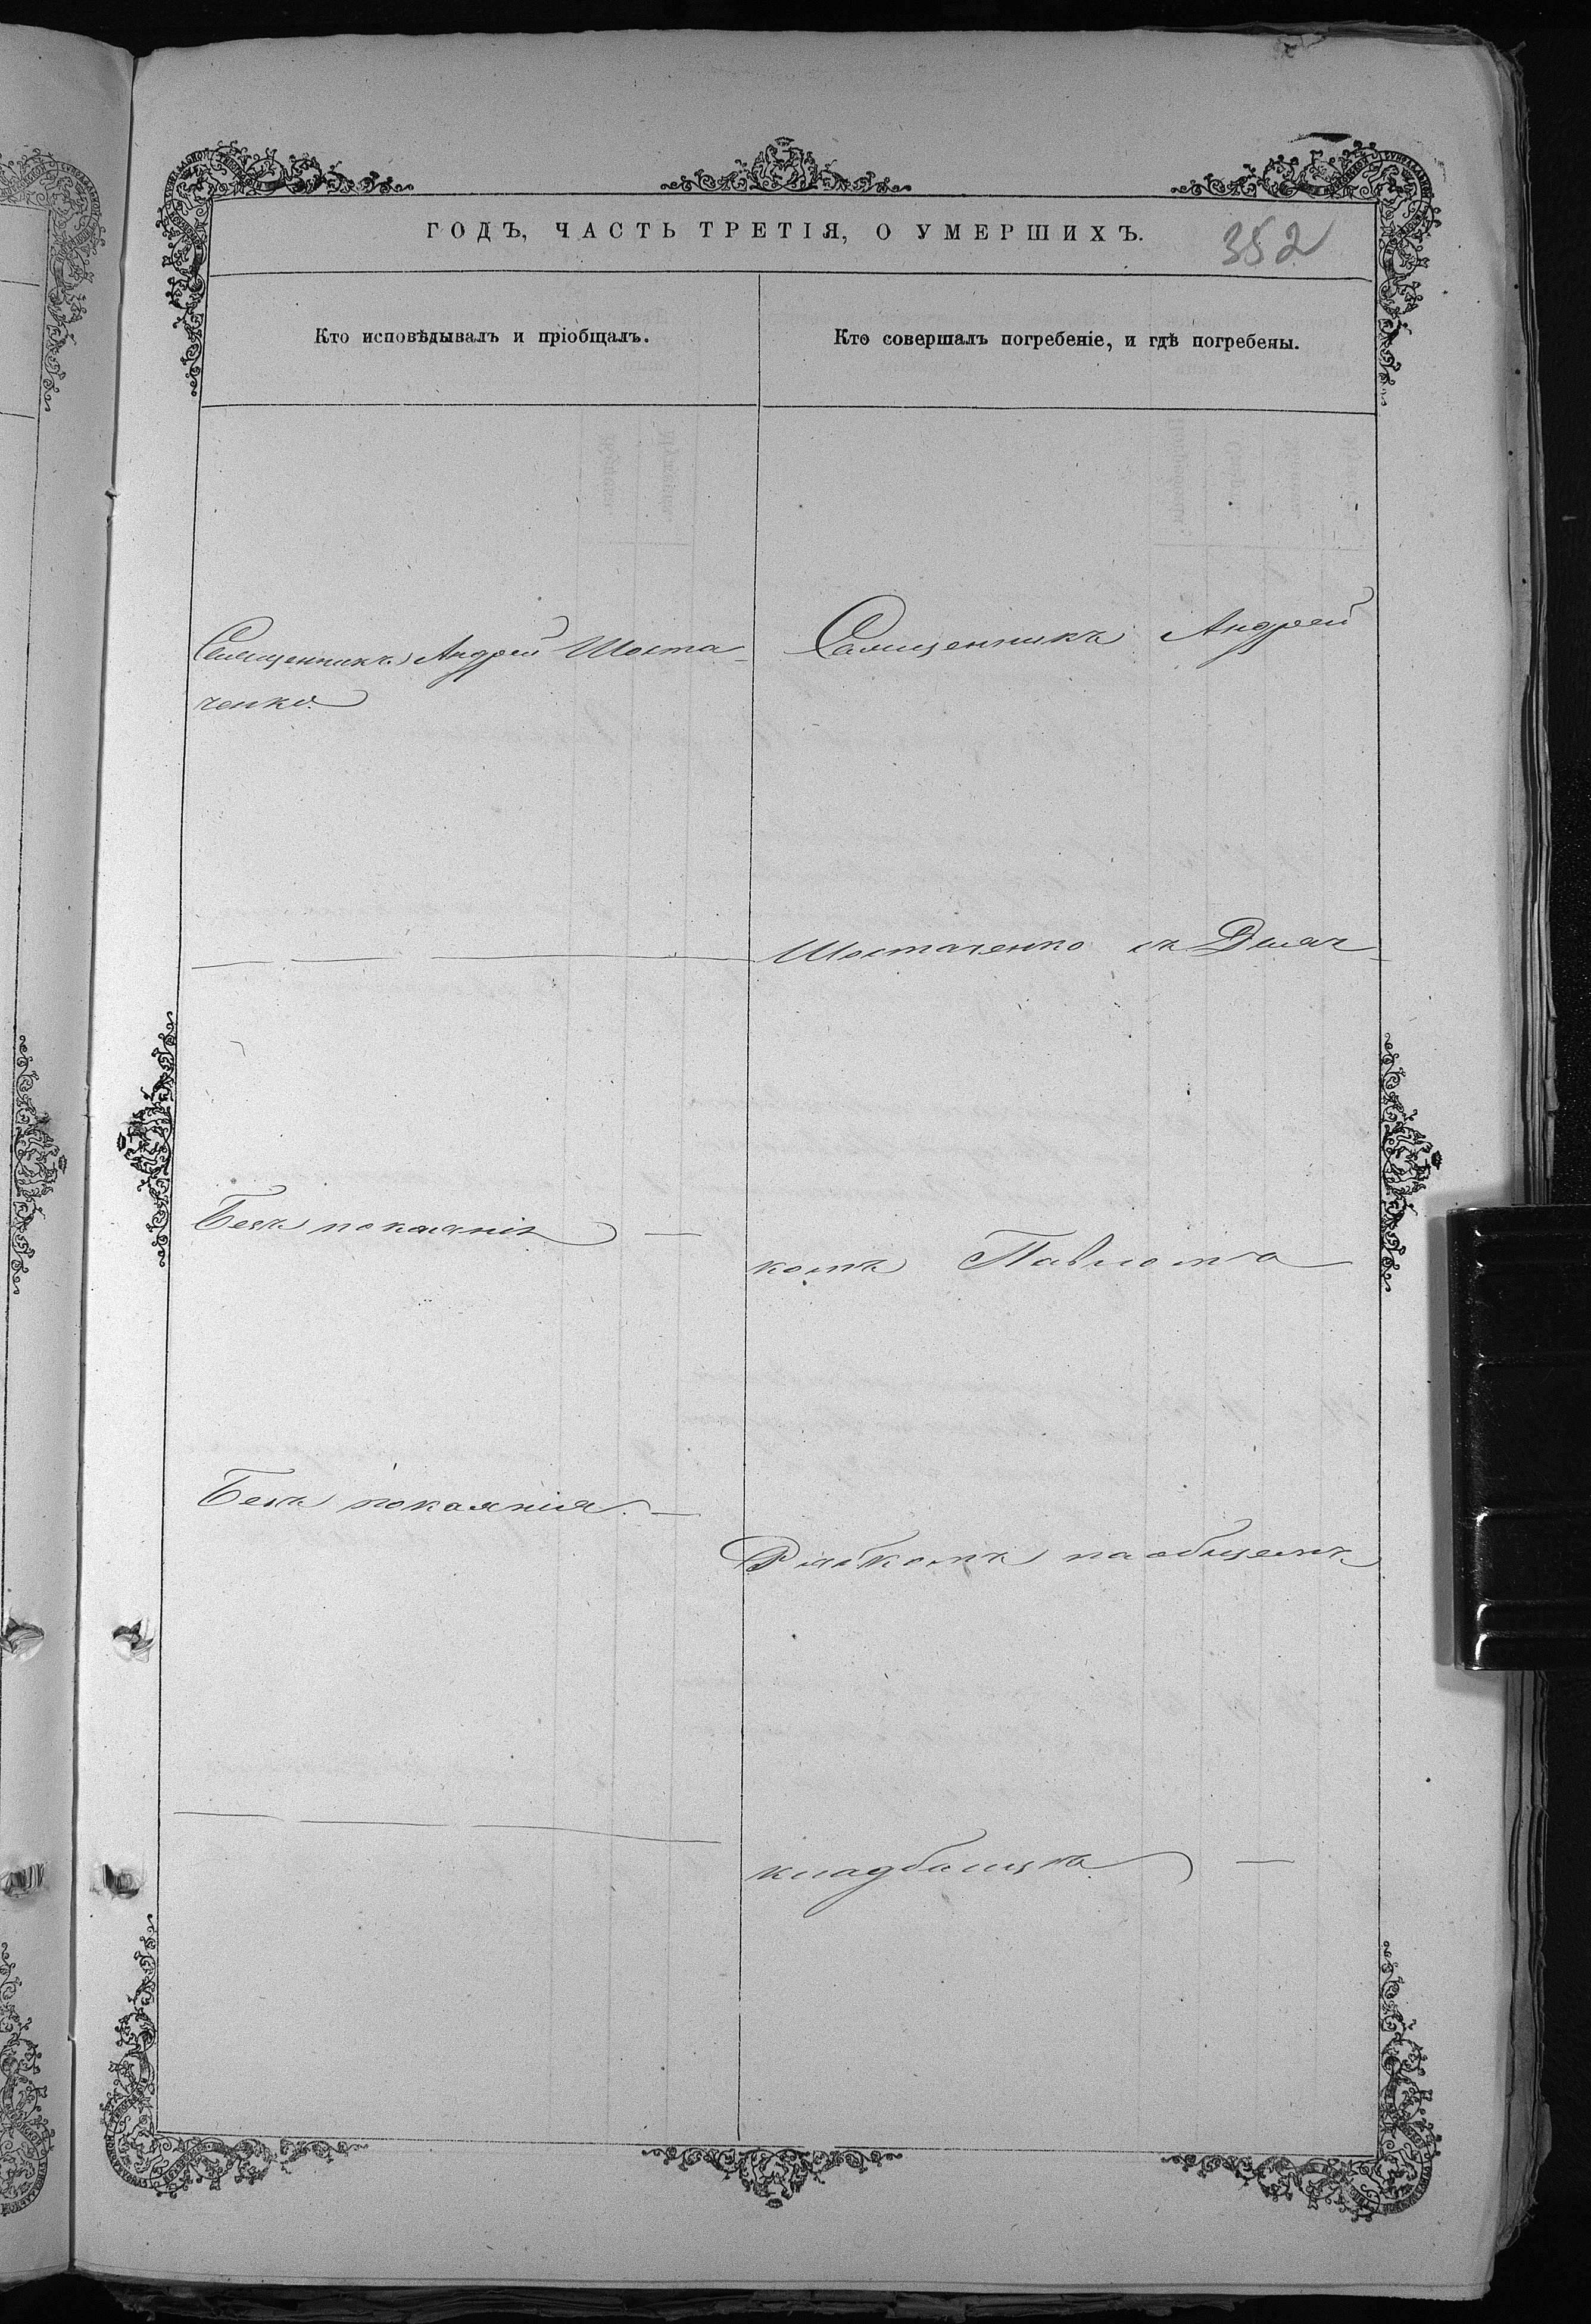 ГОДЪ, ЧАСТЬ ТРЕТІЯ, О УМЕРШИХЪ.
352
Кто исповѣдывалъ и пріобщалъ.
Кто совершалъ погребеніе, и гдѣ погребены.
Священникъ Андрей Шоста-
ченко.
Священникъ Андрей
Шостаченко съ Дьяч-
Безъ покаянія —
комъ Павломъ
Безъ покаянія. —
Рябкомъ на общемъ
кладбищѣ. —